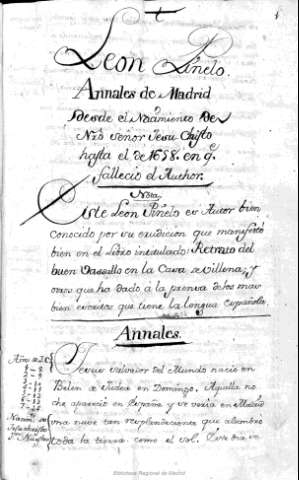 Leon Pinelo.
Annales de Madrid
desde el Nacimiento de
Nrō Señor Jesu Christo
hasta el de 1658. en q.
fallecio el Author.
Nota
Este Leon Pinelo es Autor bien
conocido por su erudicion que manifestó
bien en el Libro intitulado: Retrato del
buen Vassallo en la Casa de Villena, y
otros que ha dado á la prensa de los mas
bien escritos que tiene la lengua española.
Annales.
Jesus salvador del Mundo nacio en
Belen de Judea en Domingo, Aquella no
che aparecio en España y se veria en Madrid
una nuve tan resplandeciente que alumbro
toda la tierra como el sol.
Biblioteca Regional de Madrid